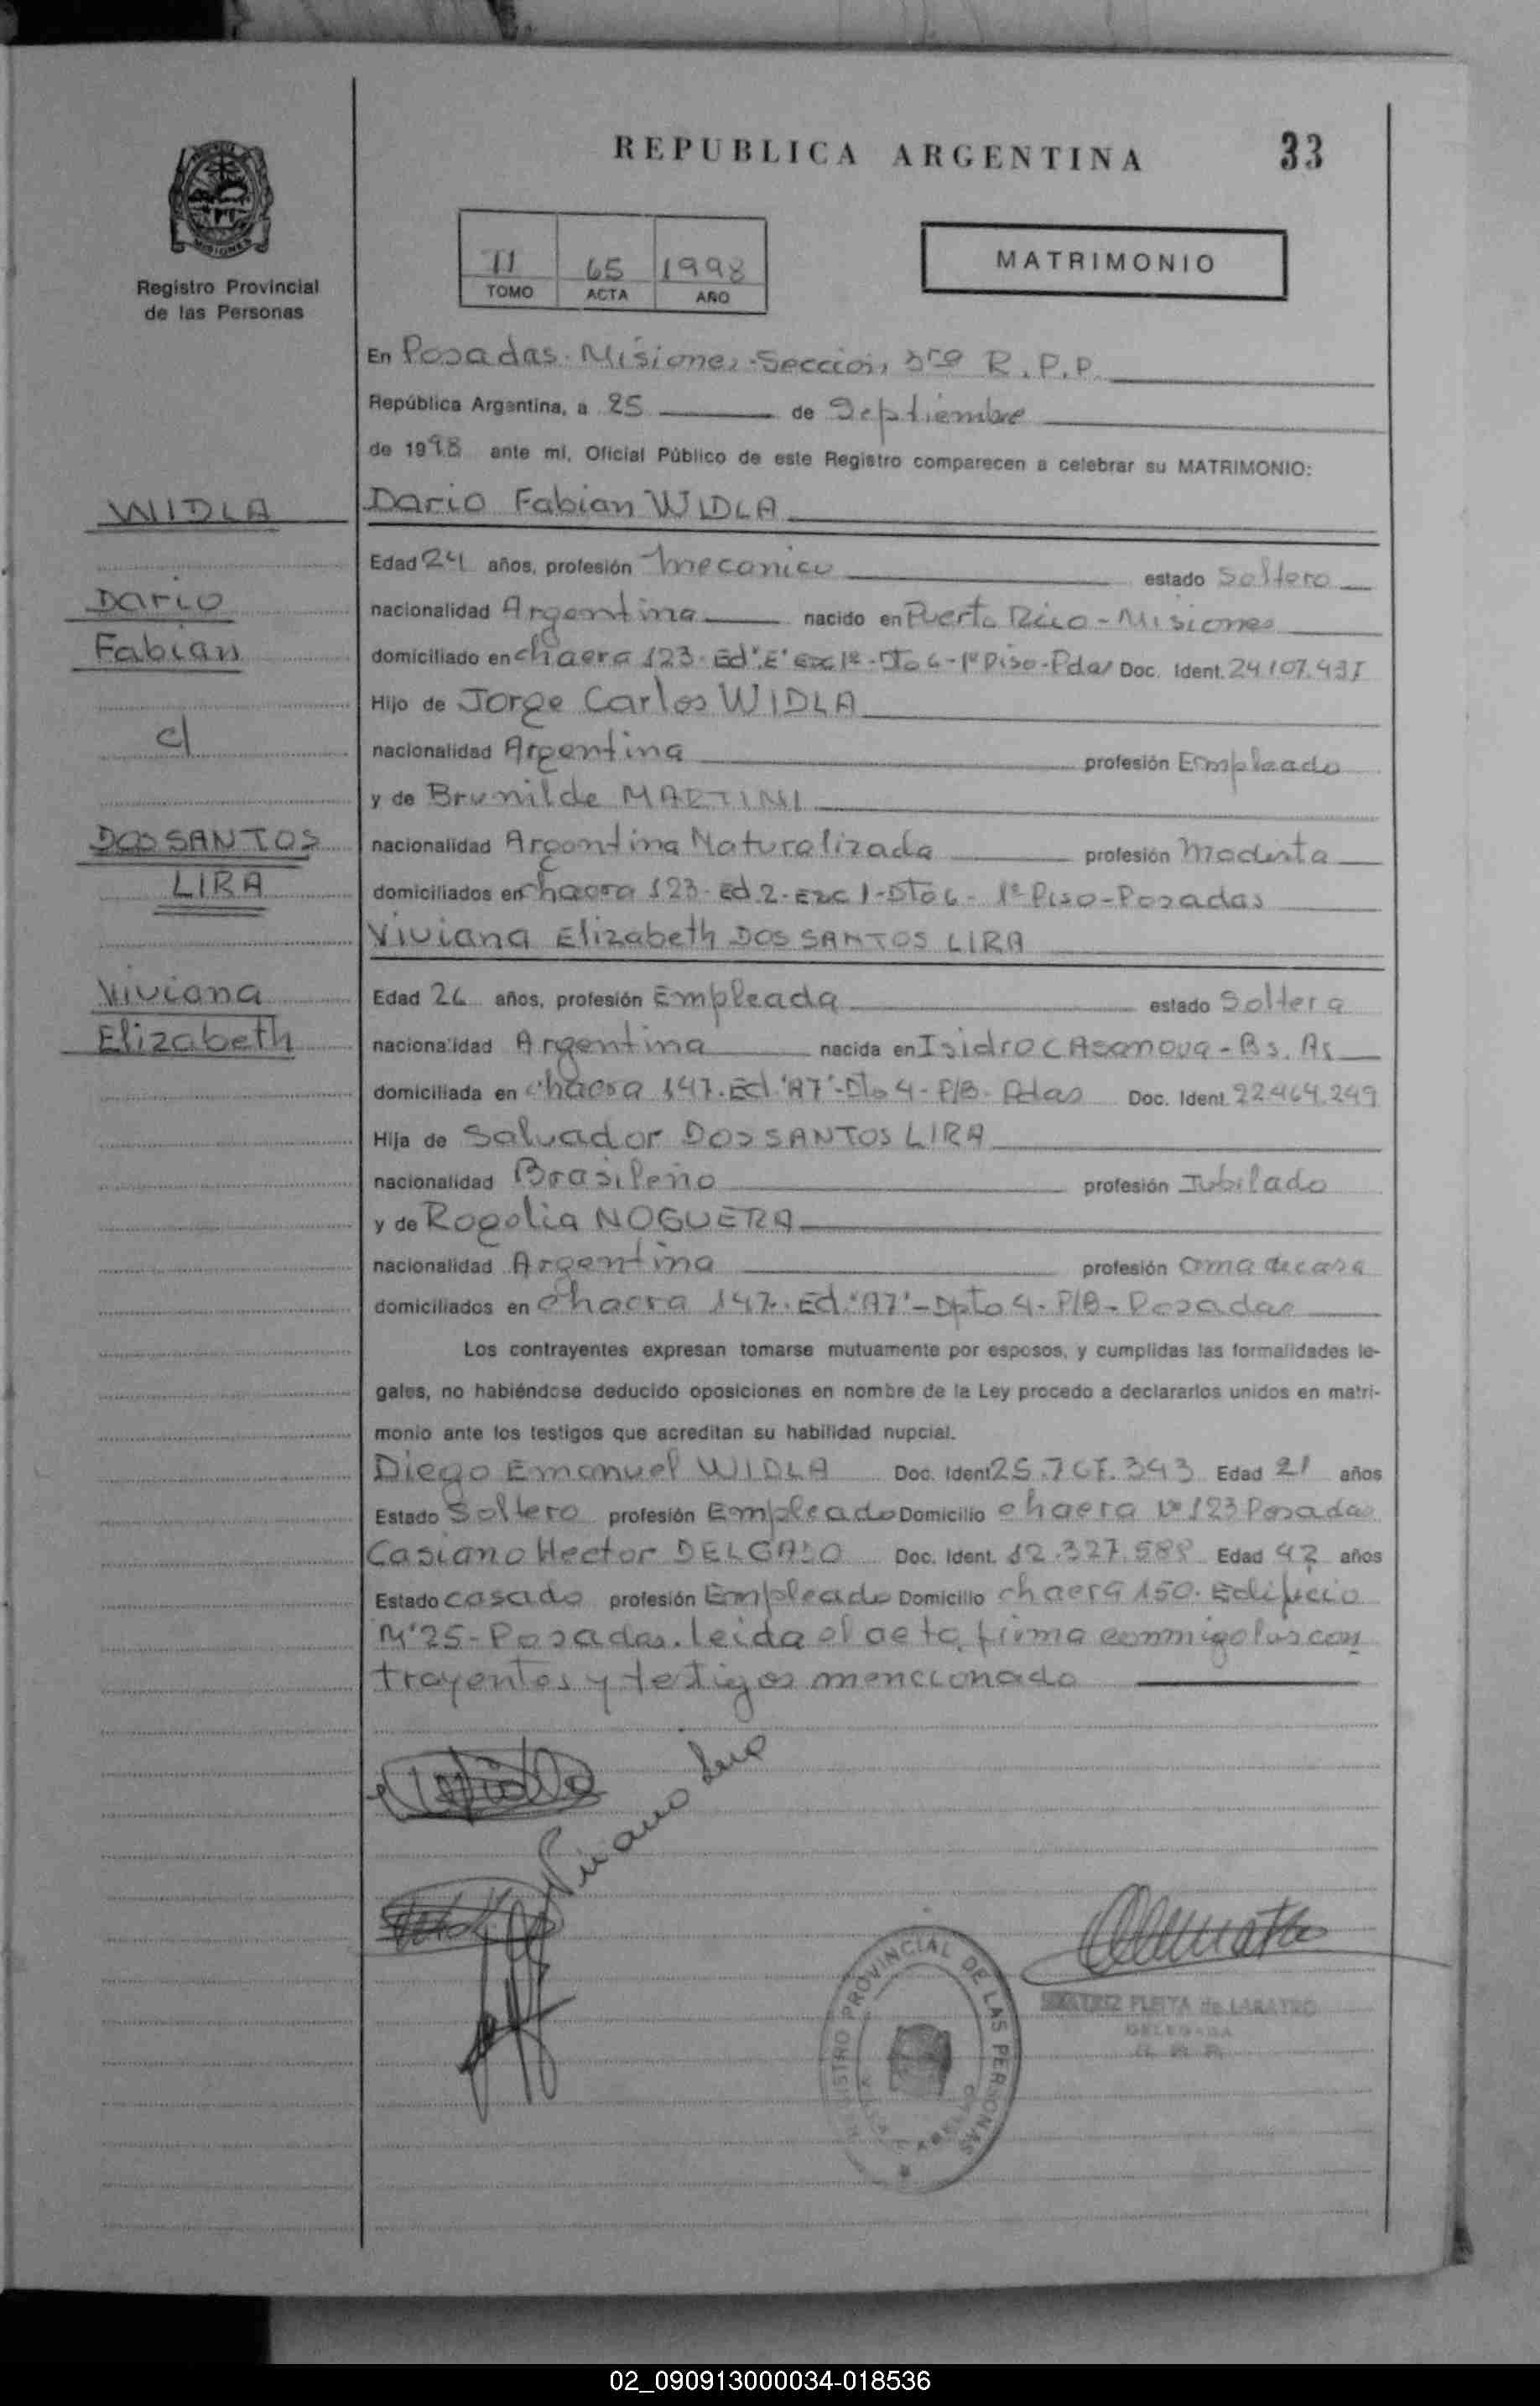 REPUBLICA ARGENTINA
33
MISIONES
Registro Provincial
de las Personas
II 65 1998
TOMO ACTA AÑO
MATRIMONIO
En Posadas. Misiones-Sección 3ra R.P.P.
República Argentina, a 25 de Septiembre
de 1998 ante mí, Oficial Público de este Registro comparecen a celebrar su MATRIMONIO:
WIDLA
Dario Fabian WIDLA
Edad 24 años, profesión mecanico estado Soltero
Dario
nacionalidad Argentina nacido en Puerto Rico - Misiones
Fabian
domiciliado en chacra 123. Ed "E" 1º - Dto 6 - 1º Piso - Pdas Doc. Ident. 24.107.431
Hijo de Jorge Carlos WIDLA
c/
nacionalidad Argentina profesión Empleado
y de Brunilde MARTINI
DOS SANTOS
nacionalidad Argentina Naturalizada profesión Modista
LIRA
domiciliados en chacra 123. Ed. 2 - Esc 1 - Dto 6 - 1º Piso - Posadas
Viviana Elizabeth DOS SANTOS LIRA
Viviana
Edad 26 años, profesión Empleada estado Soltera
Elizabeth
nacionalidad Argentina nacida en Isidro CAsanova - Bs. As
domiciliada en chacra 147. Ed. "A7" - Dto 4 - P/B - Pdas Doc. Ident. 22.464.249
Hija de Salvador DOS SANTOS LIRA
nacionalidad Brasileño profesión Jubilado
y de Rogelia NOGUERA
nacionalidad Argentina profesión ama de casa
domiciliados en chacra 147. Ed. "A7" - Dpto 4 - P/B - Posadas
Los contrayentes expresan tomarse mutuamente por esposos, y cumplidas las formalidades le-
gales, no habiéndose deducido oposiciones en nombre de la Ley procedo a declararlos unidos en matri-
monio ante los testigos que acreditan su habilidad nupcial.
Diego Emanuel WIDLA Doc. Ident 25.767.343 Edad 21 años
Estado Soltero profesión Empleado Domicilio chacra Nº 123 Posadas
Casiano Hector DELGADO Doc. Ident. 12.327.588 Edad 42 años
Estado casado profesión Empleado Domicilio chacra 150. Edificio
Nº 25 - Posadas. leida el acta, firma conmigo los con
trayentes y testigos mencionado
Viviana Lira
REGISTRO PROVINCIAL DE LAS PERSONAS
BEATRIZ FLEITA de LABATRO
DELEGADA
02_090913000034-018536